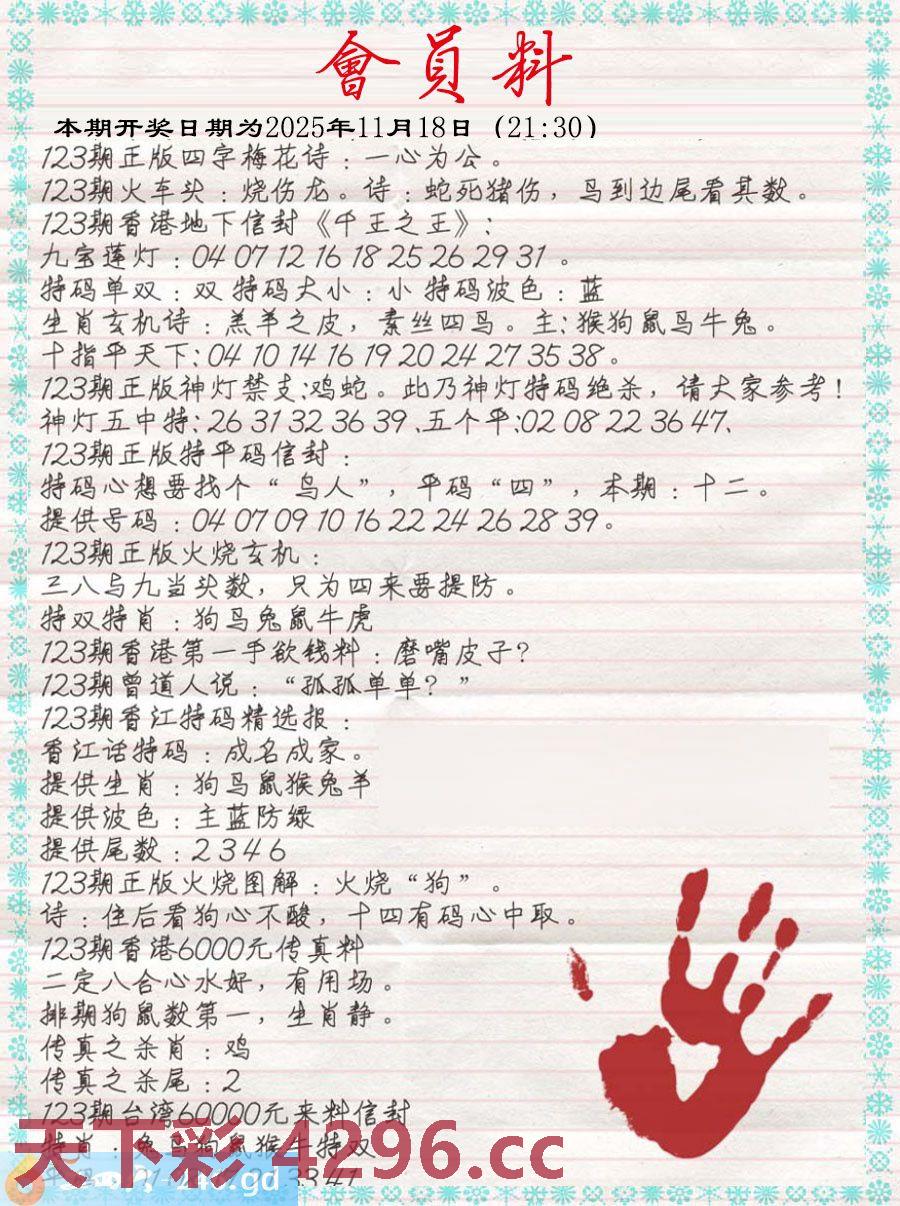 會員料
本期开奖日期为2025年11月18日（21:30）
123期正版四字梅花诗：一心为公。
123期火车头：烧伤龙。诗：蛇死猪伤，鸟到边尾看其数。
123期香港地下信封《千王之王》:
九宝莲灯：04 07 12 16 18 25 26 29 31 。
特码单双：双 特码大小：小 特码波色：蓝
生肖玄机诗：羔羊之皮，素丝四鸟。主:猴狗鼠鸟牛兔。
十指平天下:04 10 14 16 19 20 24 27 35 38。
123期正版神灯禁支:鸡蛇。此乃神灯特码绝杀，请大家参考！
神灯五中特:26 31 32 36 39 、五个平:02 08 22 36 47、
123期正版特平码信封：
特码心想要找个“鸟人”，平码“四”，本期：十二。
提供号码：04 07 09 10 16 22 24 26 28 39。
123期正版火烧玄机：
三八与九当头数，只为四来要提防。
特双特肖：狗鸟兔鼠牛虎
123期香港第一手欲钱料：磨嘴皮子？
123期曾道人说：“孤孤单单？”
123期香江特码精选报：
香江话特码：成名成家。
提供生肖：狗鸟鼠猴兔羊
提供波色：主蓝防绿
提供尾数：2 3 4 6
123期正版火烧图解：火烧“狗”。
诗：住后看狗心不酸，十四有码心中取。
123期香港6000元传真料
二定八合心水好，有用场。
排期狗鼠数第一，生肖静。
传真之杀肖：鸡
传真之杀尾：2
123期台湾60000元来料信封
特肖：兔鸟狗鼠猴牛特双
天下彩.4296.cc
33 41
.gd